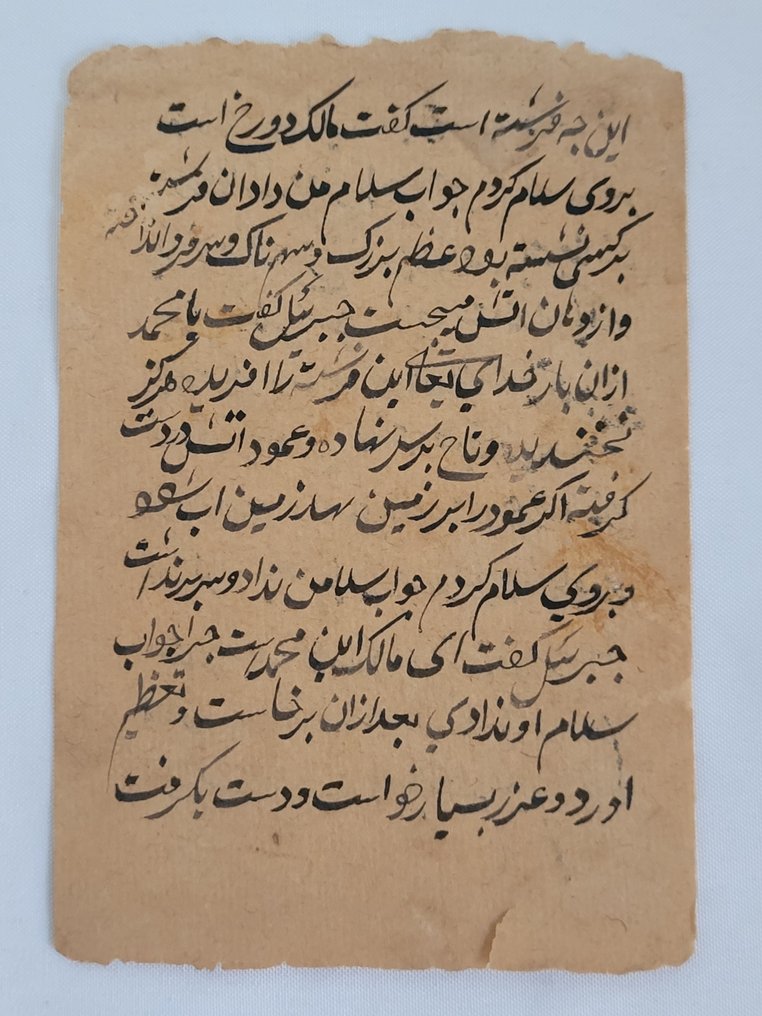 این چه فرشته است گفت مالک دورخ است
بروی سلام کردم جواب سلام من داد ان فرشته
بر کرسی نشسته بود عظم بزرک و سهم ناک و سر فرو انداخته
واز دهان اتش میجست جبرئیل گفت یا محمد
ازان باز خدای تعالی این فرشته را افریده هرکز
نخندیده و تاج بر سر نهاده و عمود اتش در دست
کرفته اکر عمود را بر زمین نهد زمین اب شود
و بروي سلام کردم جواب سلام من نداد و سر برنداشت
جبرئیل گفت ای مالک این محمدست چرا جواب
سلام او ندادي بعد ازان برخاست و تعظیم
اورد و عذر بسیار خواست و دست بکرفت